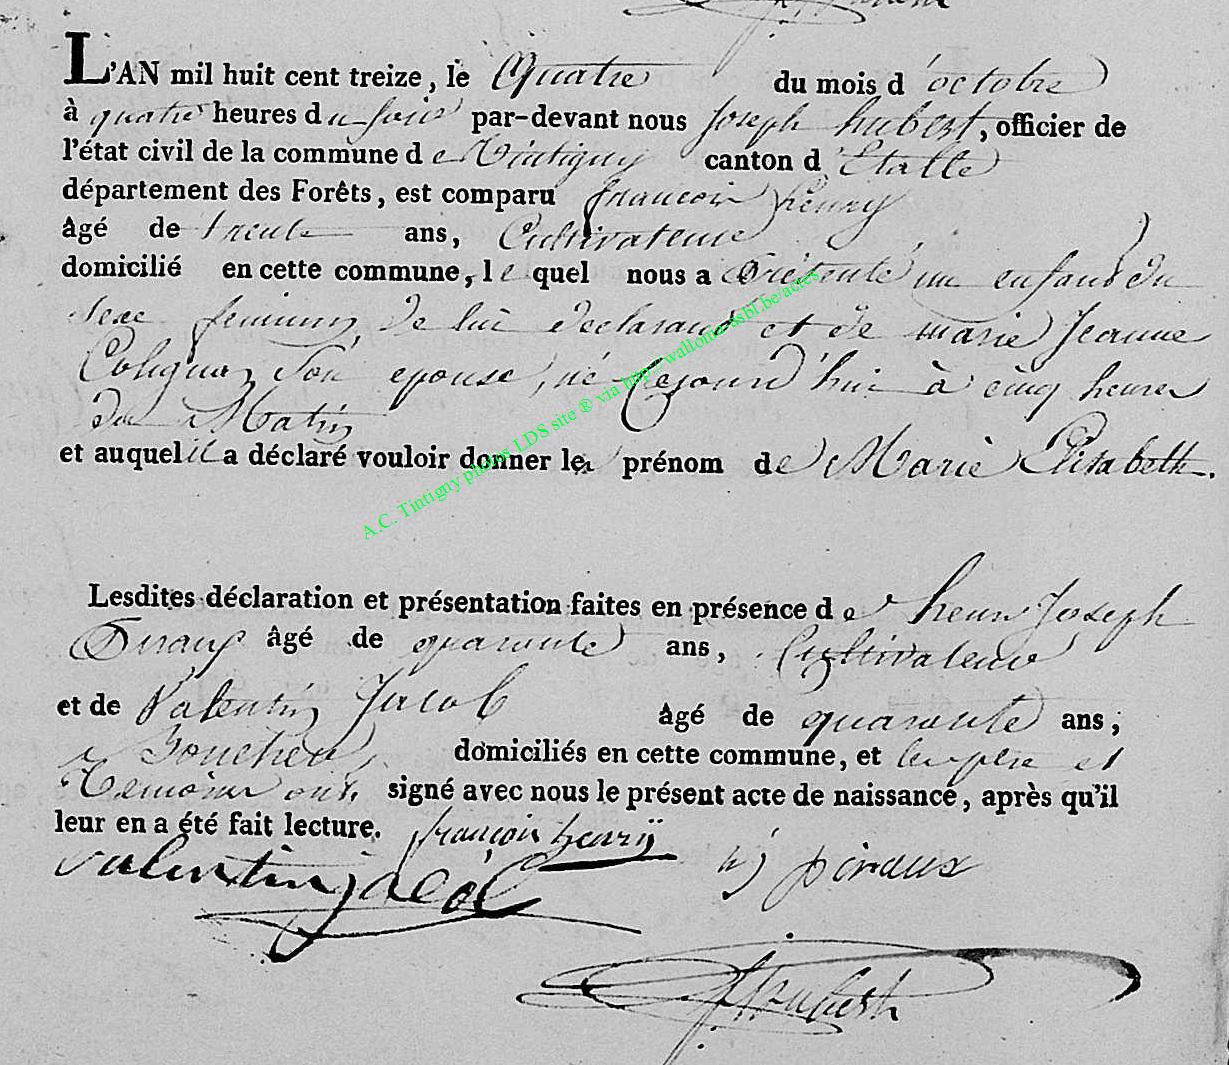 L'AN mil huit cent treize, le Quatre du mois d'octobre
à quatre heures du soir par-devant nous Joseph hubert, officier de
l'état civil de la commune de Tintigny canton d'Etalle
département des Forêts, est comparu françois henry
âgé de trente ans, Cultivateur
domicilié en cette commune, lequel nous a présenté un enfant du
sexe feminin de lui declarant et de marie Jeanne
Colignon son epouse, né cejourd'hui à cinq heures
du Matin
et auquel il a déclaré vouloir donner les prénom de Marie Elisabeth.
A.C. Tintigny photos LDS site ® via http://wallonia-asbl.be/actes
Lesdites déclaration et présentation faites en présence de henri Joseph
Piraux âgé de quarante ans, Cultivateur
et de Valentin Jacob âgé de quarante ans,
domiciliés en cette commune, et les père et
temoins ont signé avec nous le présent acte de naissance, après qu'il
leur en a été fait lecture. françois henrÿ
valentin jacob hj piraux
J Hubert